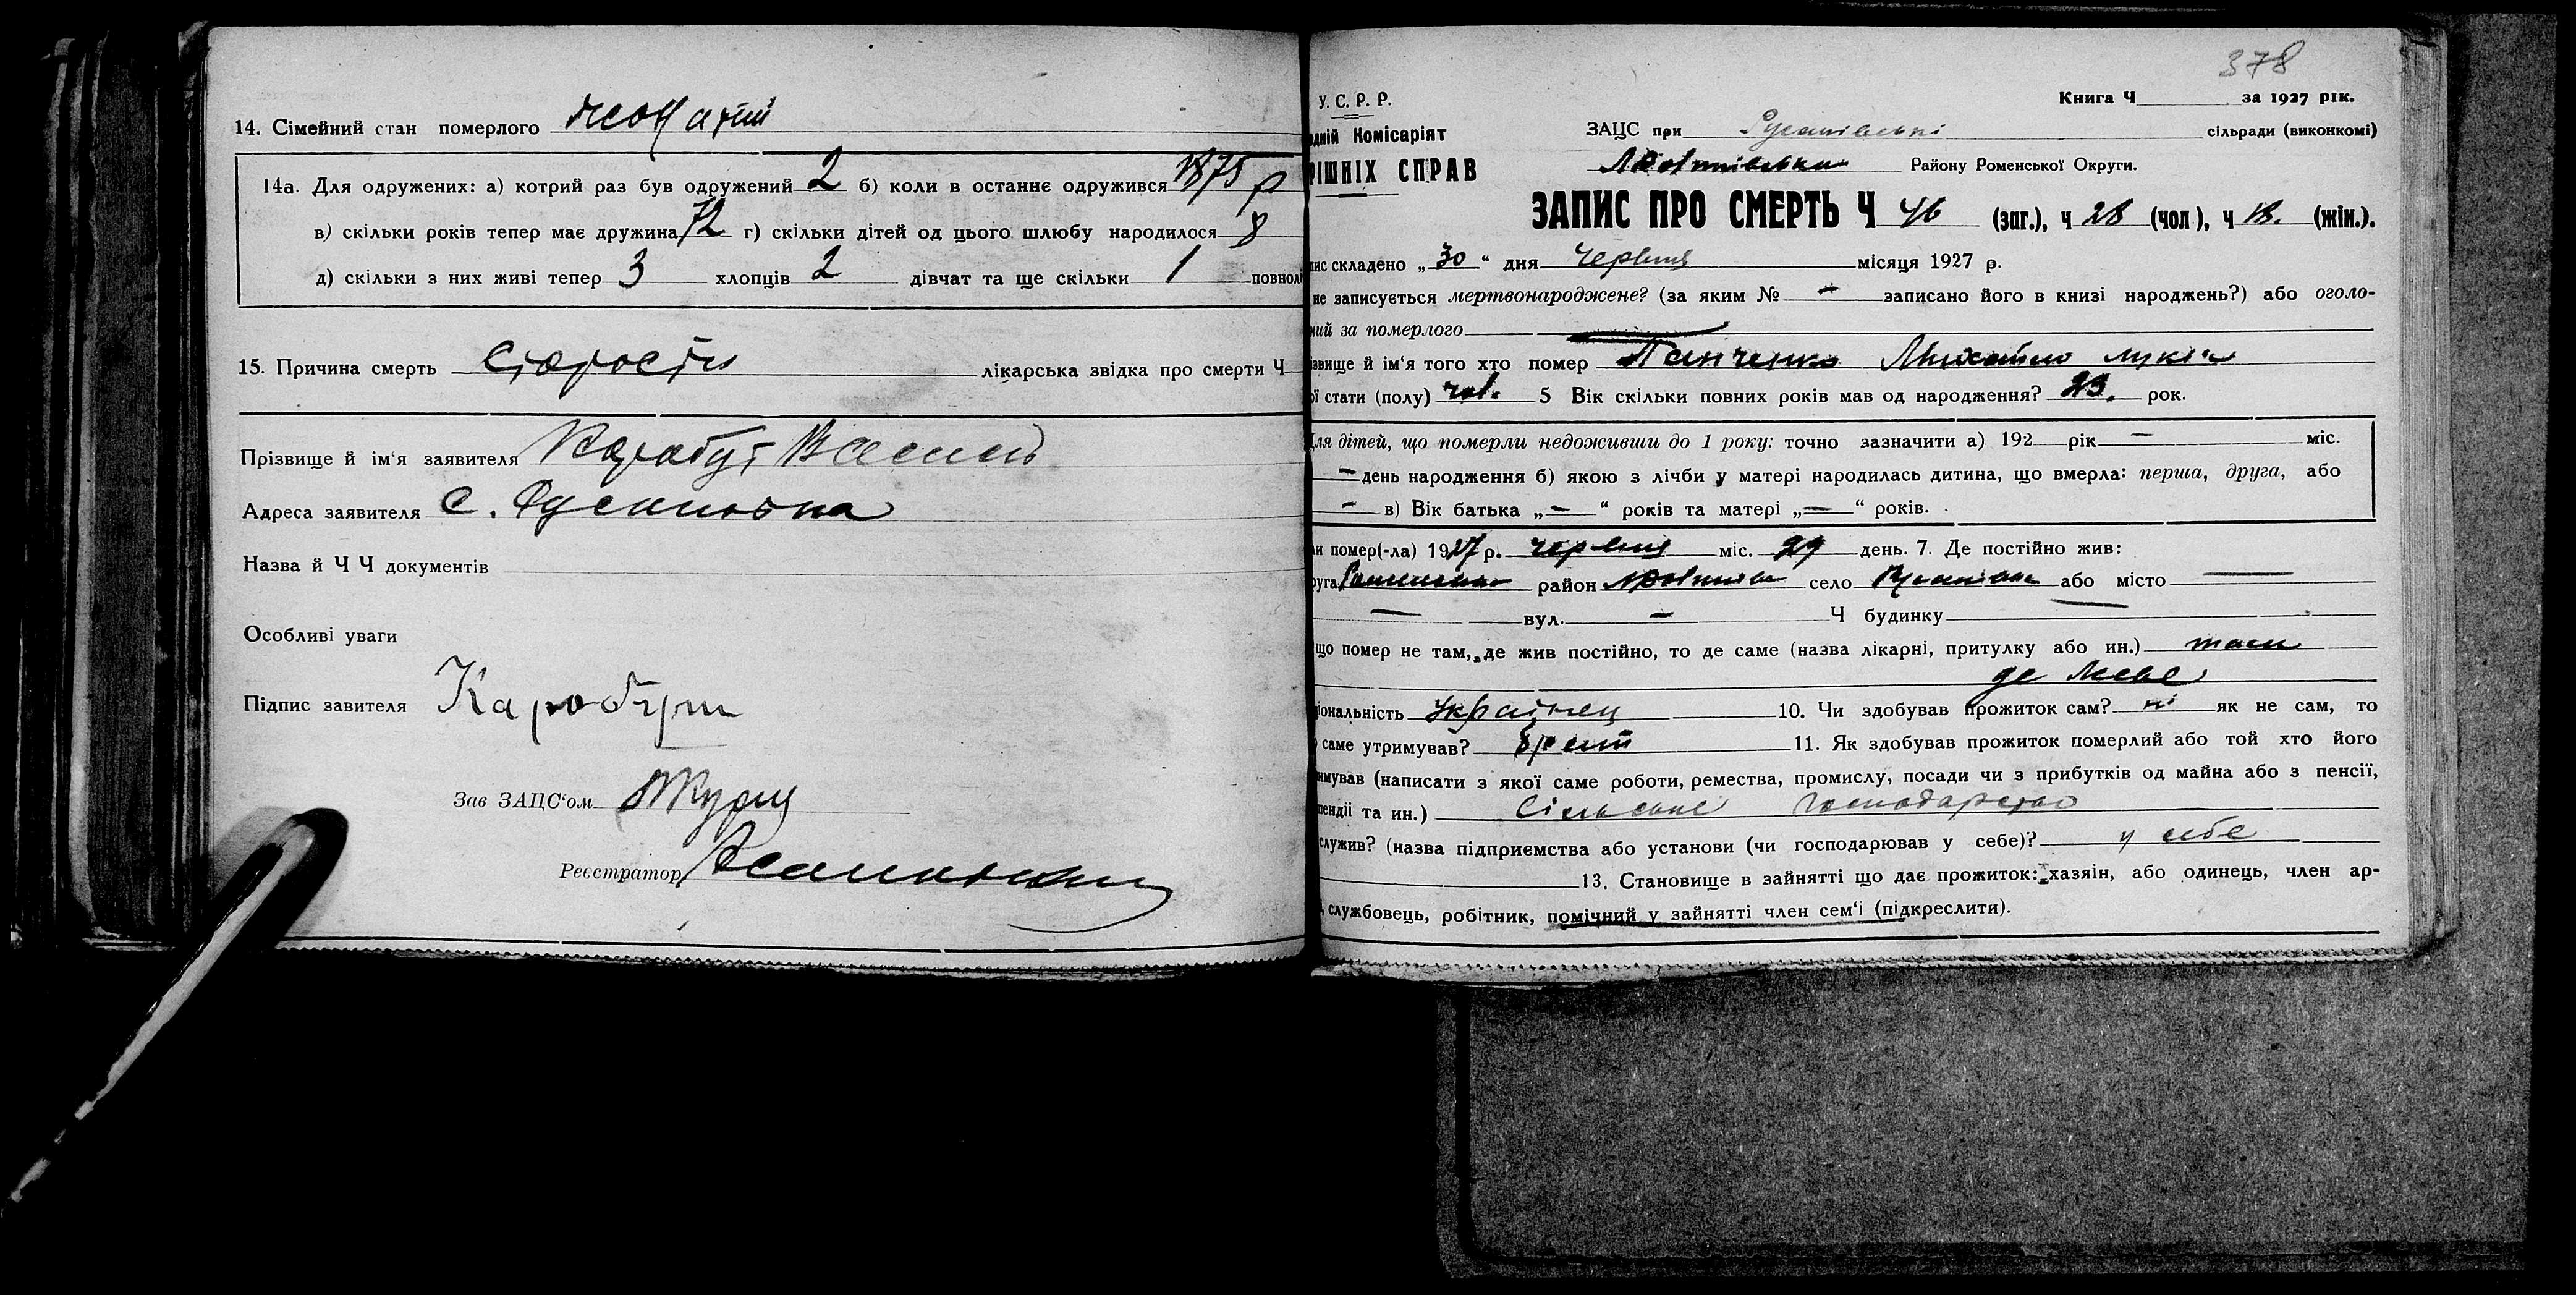 14. Сімейний стан померлого жонатий
14а. Для одружених: а) котрий раз був одружений 2 б) коли в останнє одружився 1875 р
в) скільки років тепер має дружина 72 г) скільки дітей од цього шлюбу народилося 8
д) скільки з них живі тепер 3 хлопців 2 дівчат та ще скільки 1 повнолі
15. Причина смерть старость лікарська звідка про смерти Ч
Прізвище й ім'я заявителя Коробут Василь
Адреса заявителя с. Русанівка
Назва й Ч Ч документів
Особливі уваги
Підпис завителя Каробут
Зав ЗАЦС'ом
Реєстратор
378
У. С. Р. Р.
Книга Ч за 1927 рік.
одній Комісаріят
ЗАЦС при Русанівські сільради (виконкомі)
РІШНІХ СПРАВ
Району Роменської Округи.
ЗАПИС ПРО СМЕРТЬ Ч 46 (заг.), ч 28 (чол.), ч 18. (жін.).
пис складено „30“ дня червня місяця 1927 р.
не записується мертвонароджене? (за яким № – записано його в книзі народжень?) або оголо-
ний за померлого
звище й ім'я того хто помер Панченко Михайло
ої стати (полу) чол. 5 Вік скільки повних років мав од народження? 23. рок.
Для дітей, що померли недоживши до 1 року: точно зазначити а) 192 рік – міс.
– день народження б) якою з лічби у матері народилась дитина, що вмерла: перша, друга, або
– в) Вік батька „–“ років та матері „–“ років.
ли помер(-ла) 1927 р. червня міс. 29 день. 7. Де постійно жив:
руга Роменська район село Русанівка або місто –
– вул. – Ч будинку –
що помер не там, де жив постійно, то де саме (назва лікарні, притулку або ин.) там
де живе
ціональність Українец 10. Чи здобував прожиток сам? ні як не сам, то
о саме утримував? 11. Як здобував прожиток померлий або той хто його
имував (написати з якої саме роботи, ремества, промислу, посади чи з прибутків од майна або з пенсії,
пендії та ин.) Сільське господарство
служив? (назва підприємства або установи (чи господарював у себе)? у себе
13. Становище в зайнятті що дає прожиток: хазяін, або одинець, член ар-
, службовець, робітник, помічний у зайнятті член сем'і (підкреслити).